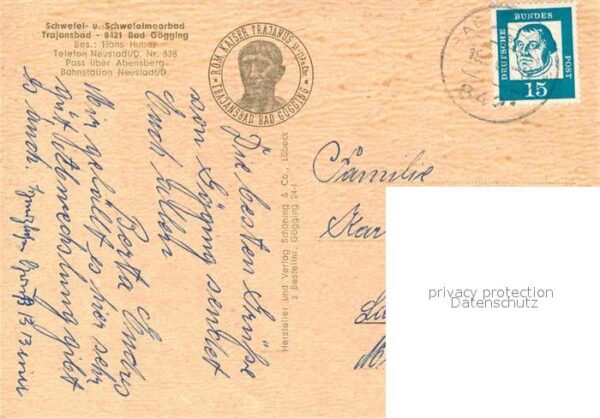 Schwefel- u. Schwefelmoorbad
Trajansbad - 8421 Bad Gögging
Bes.: Hans Huber
Telefon Neustadt/D. Nr. 328
Post über Abensberg
Bahnstation Neustadt/D.
RÖM KAISER TRAJANUS
TRAJANSBAD BAD GÖGGING
DEUTSCHE BUNDES POST
15
Die besten Grüße
von Gögging sendet
Euch allen
Berta
Mir gefällt es hier sehr
gut Abwechslung gibt
es auch.
Hersteller und Verlag Schöning & Co., Lübeck
z Besteller. Gögging 24-1
Familie
Kar
privacy protection
Datenschutz